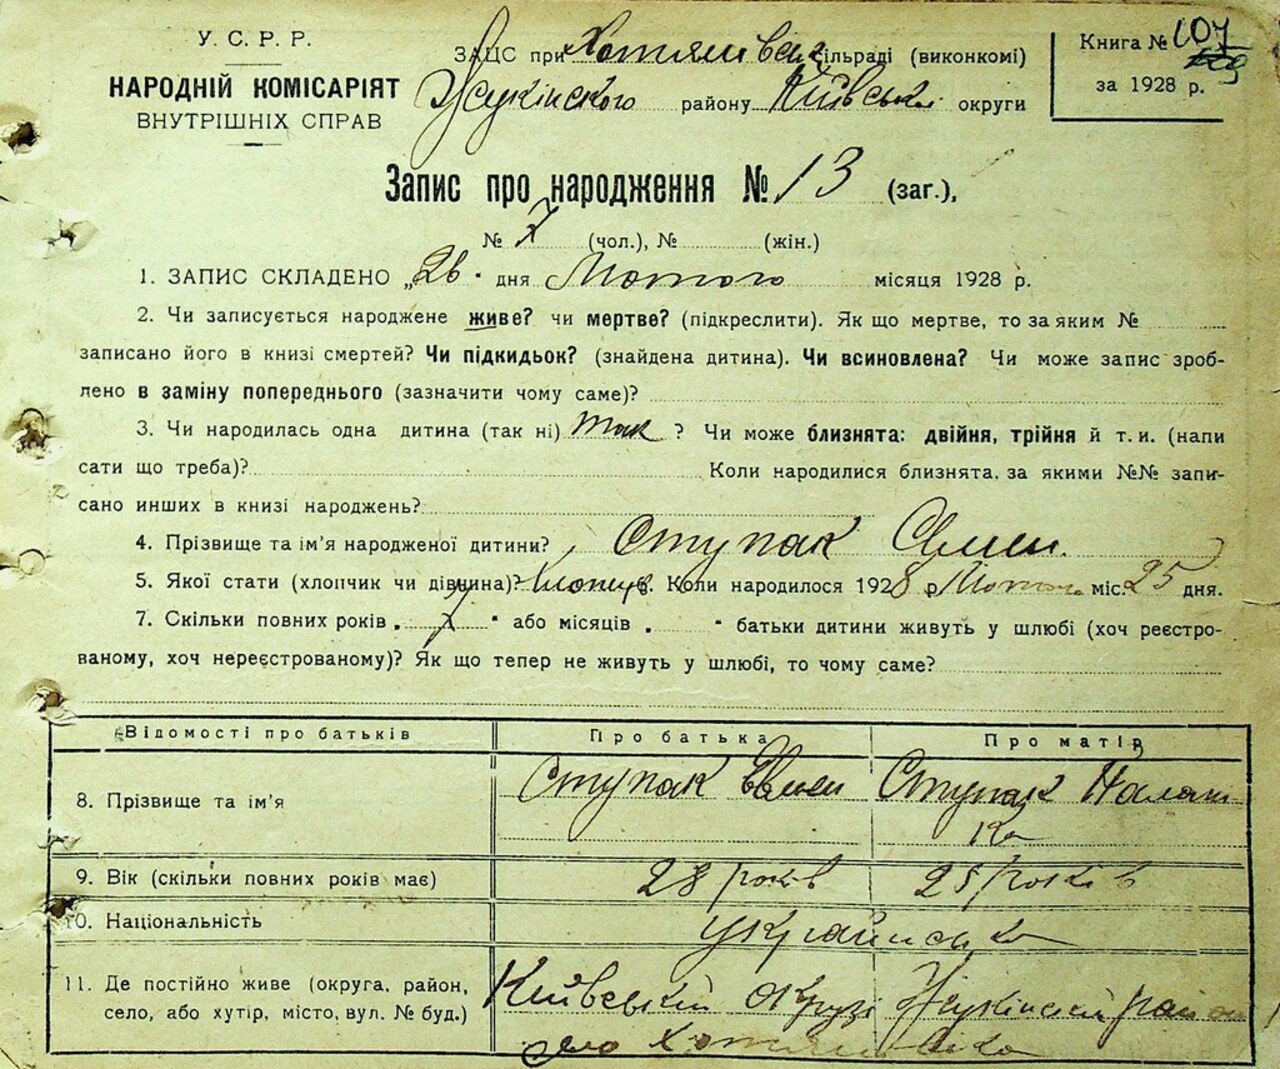 У. С. Р. Р.
НАРОДНІЙ КОМІСАРІЯТ
ВНУТРІШНІХ СПРАВ
ЗАЦС при Хотянівськ сільраді (виконкомі)
Жукінского району Київськ округи
Книга № 107
за 1928 р.
Запис про народження № 13 (заг.),
№ 7 (чол.), № (жін.)
1. ЗАПИС СКЛАДЕНО „26" дня Лютого місяця 1928 р.
2. Чи записується народжене живе? чи мертве? (підкреслити). Як що мертве, то за яким №
записано його в книзі смертей? Чи підкидьок? (знайдена дитина). Чи всиновлена? Чи може запис зроб-
лено в заміну попереднього (зазначити чому саме)?
3. Чи народилась одна дитина (так ні) так ? Чи може близнята: двійня, трійня й т. и. (напи
сати що треба)? Коли народилися близнята, за якими №№ запи-
сано инших в книзі народжень?
4. Прізвище та ім'я народженої дитини? Ступак Семен.
5. Якої стати (хлопчик чи дівчина)? Коли народилося 1928 р Лютого міс. 25 дня.
7. Скільки повних років „ 7 " або місяців „ " батьки дитини живуть у шлюбі (хоч реєстро-
ваному, хоч нереєстрованому)? Як що тепер не живуть у шлюбі, то чому саме?
Відомості про батьків Про батька Про матір
8. Прізвище та ім'я Ступак Ступак
9. Вік (скільки повних років має) 28 років 25 років
10. Національність українська
11. Де постійно живе (округа, район, Київській окрузі Жукінский район
село, або хутір, місто, вул. № буд.) село Хотянівка